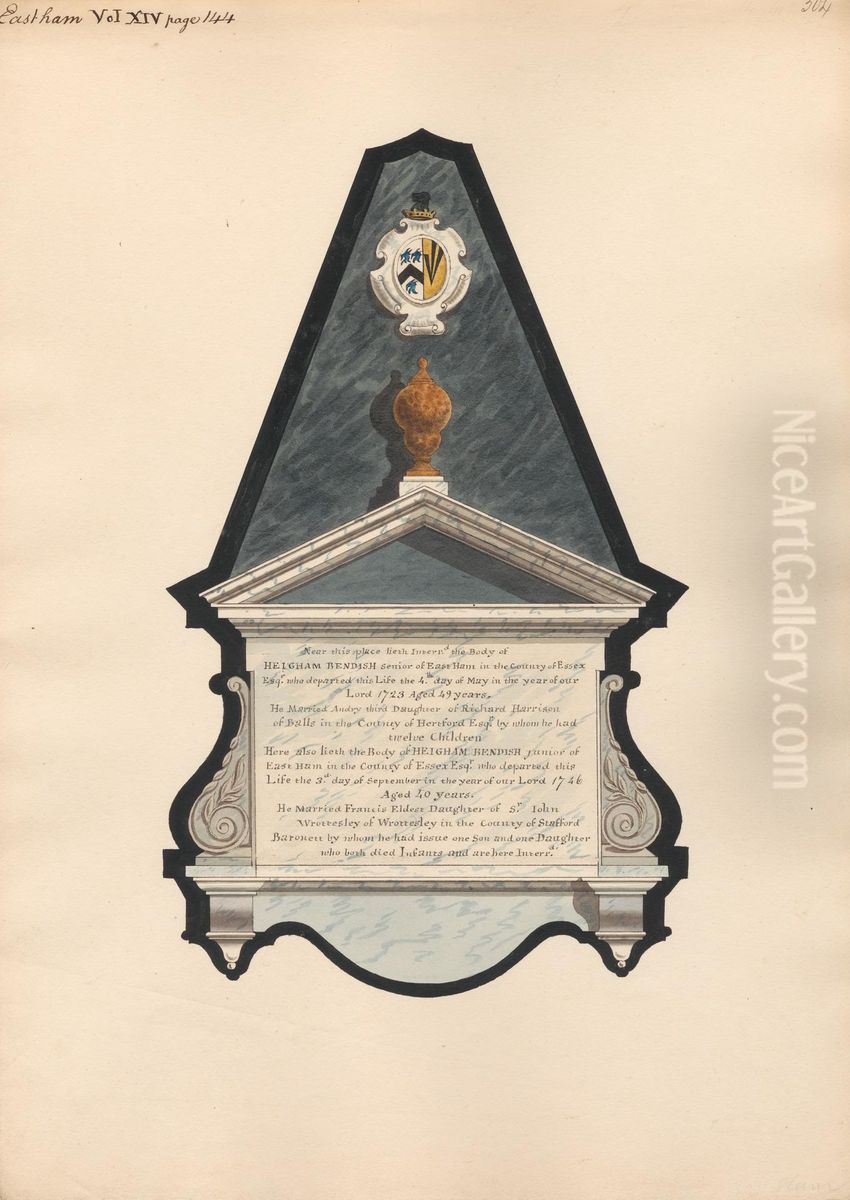 Eastham Vol XIV page 144
304
Near this place lieth Interr.d the Body of
HEIGHAM BENDISH senior of East Ham in the County of Essex
Esqr. who departed this Life the 4.th day of May in the year of our
Lord 1723 Aged 49 years.
He Married Andry third Daughter of Richard Harrison
of Balls in the County of Hertford Esqr. by whom he had
twelve Children
Here also lieth the Body of HEIGHAM BENDISH junior of
East Ham in the County of Essex Esqr. who departed this
Life the 3.d day of September in the year of our Lord 1746
Aged 40 years.
He Married Francis Eldest Daughter of Sr. Iohn
Wrottesley of Wrottesley in the County of Stafford
Baronett by whom he had issue one Son and one Daughter
who both died Infants and are here Interr.d
NiceArtGallery.com